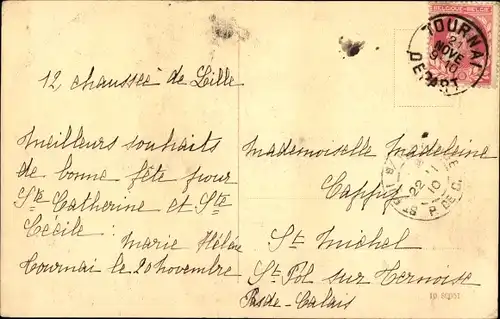 BELGIQUE-BELGIË
TOURNAI
21
NOVE
9-10
DEPART
12 chaussée de Lille
Meilleurs souhaits
de bonne fête pour
Ste Catherine et Ste
Cécile:
Marie Hélène
Tournai le 20 novembre
Mademoiselle Madeleine
St Michel
St Pol sur Ternoise
Pas-de-Calais
22
10
P. DE C.